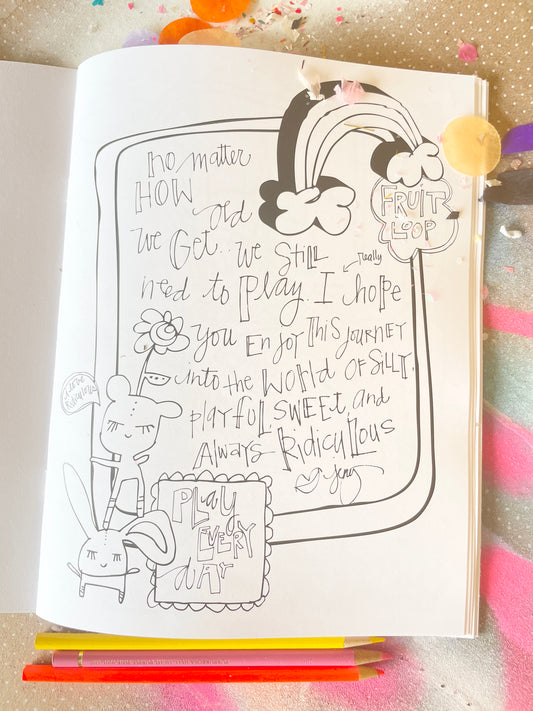 no matter
HOW old
we GET.. we STILL
really
need to play. I hope
you ENJOY THIS JOURNEY
into the WORLD OF SILLY,
playful, SWEET, and
Always RIDICULLOUS
FRUIT
LOOP
PLAY
EVERY
dAY